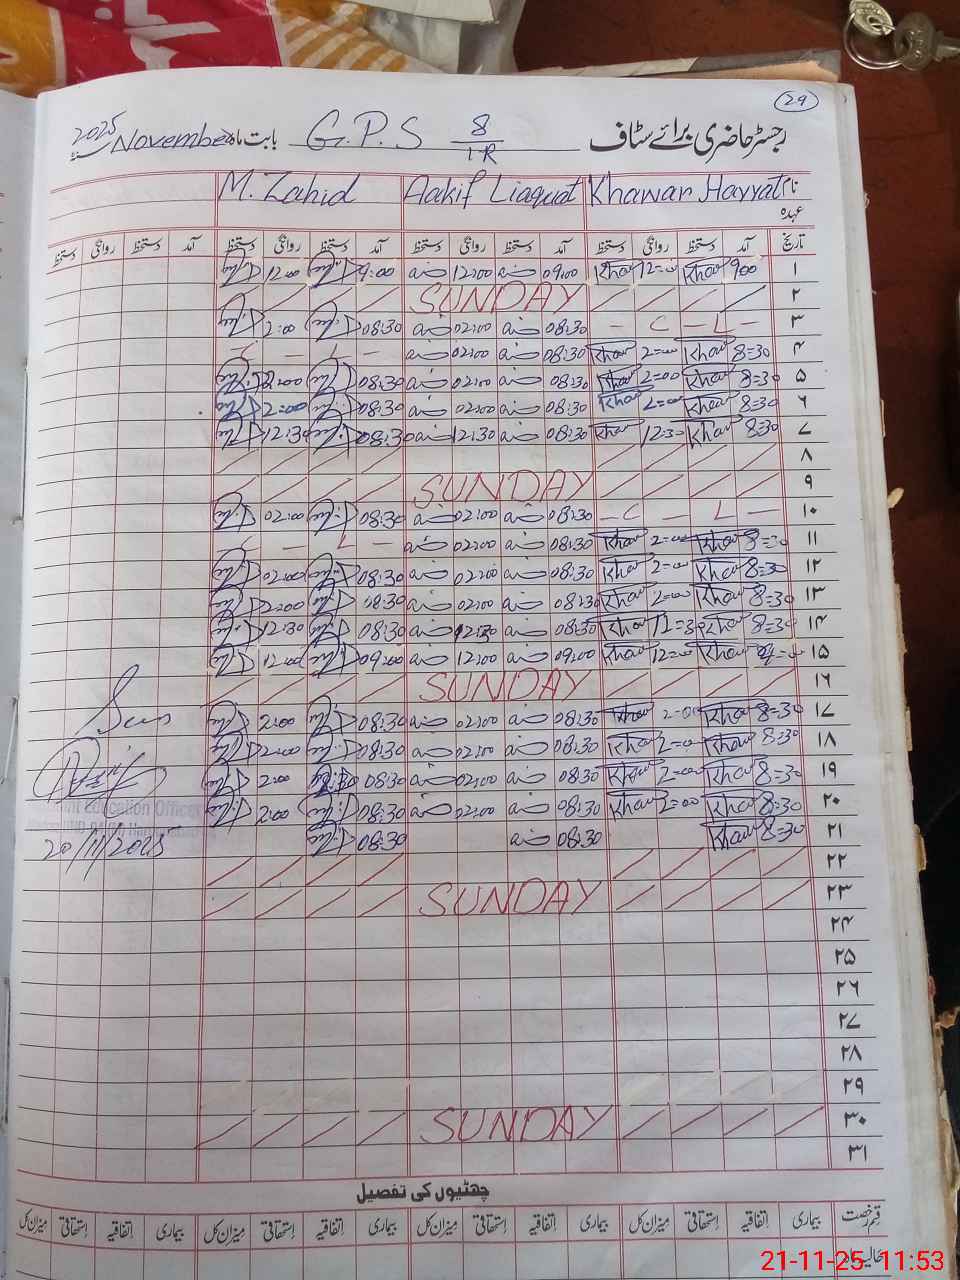 29
رجسٹر حاضری برائے سٹاف G.P.S 8/1-R بابت ماہ November 2025
نام Khawar Hayyat Aakif Liaquat M. Zahid
عہدہ
تاریخ آمد دستخط روانگی دستخط آمد دستخط روانگی دستخط آمد دستخط روانگی دستخط آمد دستخط روانگی دستخط
۱ 900 Khawar 12=00 Khawar 09:00 12:00 9:00 12:00
۲ SUNDAY
۳ - L - C - 08:30 02:00 08:30 2:00
۴ 8=30 Khawar 2=00 Khawar 08:30 02:00 - L - C
۵ 8=30 Khawar 2=00 Khawar 08:30 02:00 08:30 2:00
۶ 8=30 Khawar 2=00 Khawar 08:30 02:00 08:30 2:00
۷ 8=30 Khawar 12=30 Khawar 08:30 12:30 08:30 12:30
۸
۹ SUNDAY
۱۰ - L - C - 08:30 02:00 08:30 02:00
۱۱ 8=30 Khawar 2=00 Khawar 08:30 02:00 - L - C
۱۲ 8=30 Khawar 2=00 Khawar 08:30 02:00 08:30 02:00
۱۳ 8=30 Khawar 2=00 Khawar 08:30 02:00 08:30 2:00
۱۴ 8=30 Khawar 12=30 Khawar 08:30 12:30 08:30 12:30
۱۵ Khawar 12=00 Khawar 09:00 12:00 09:00 12:00
۱۶ SUNDAY
۱۷ 8=30 Khawar 2=00 Khawar 08:30 02:00 08:30 2:00
۱۸ 8=30 Khawar 2=00 Khawar 08:30 02:00 08:30 2:00
۱۹ 8=30 Khawar 2=00 Khawar 08:30 02:00 08:30 2:00
۲۰ 8=30 Khawar 2=00 Khawar 08:30 02:00 08:30 2:00
Education Officer
۲۱ 8=30 Khawar 08:30 08:30
20/11/2025
۲۲
۲۳ SUNDAY
۲۴
۲۵
۲۶
۲۷
۲۸
۲۹
۳۰ SUNDAY
۳۱
چھٹیوں کی تفصیل
قسم رخصت بیماری اتفاقیہ استحقاقی میزان کل بیماری اتفاقیہ استحقاقی میزان کل بیماری اتفاقیہ استحقاقی میزان کل بیماری اتفاقیہ استحقاقی میزان کل
حالیہ ماہ
21-11-25 11:53